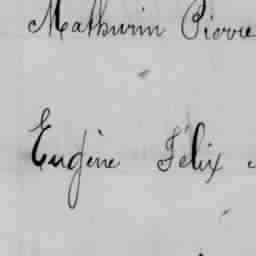 Mathurin Pierre
Eugène Félix